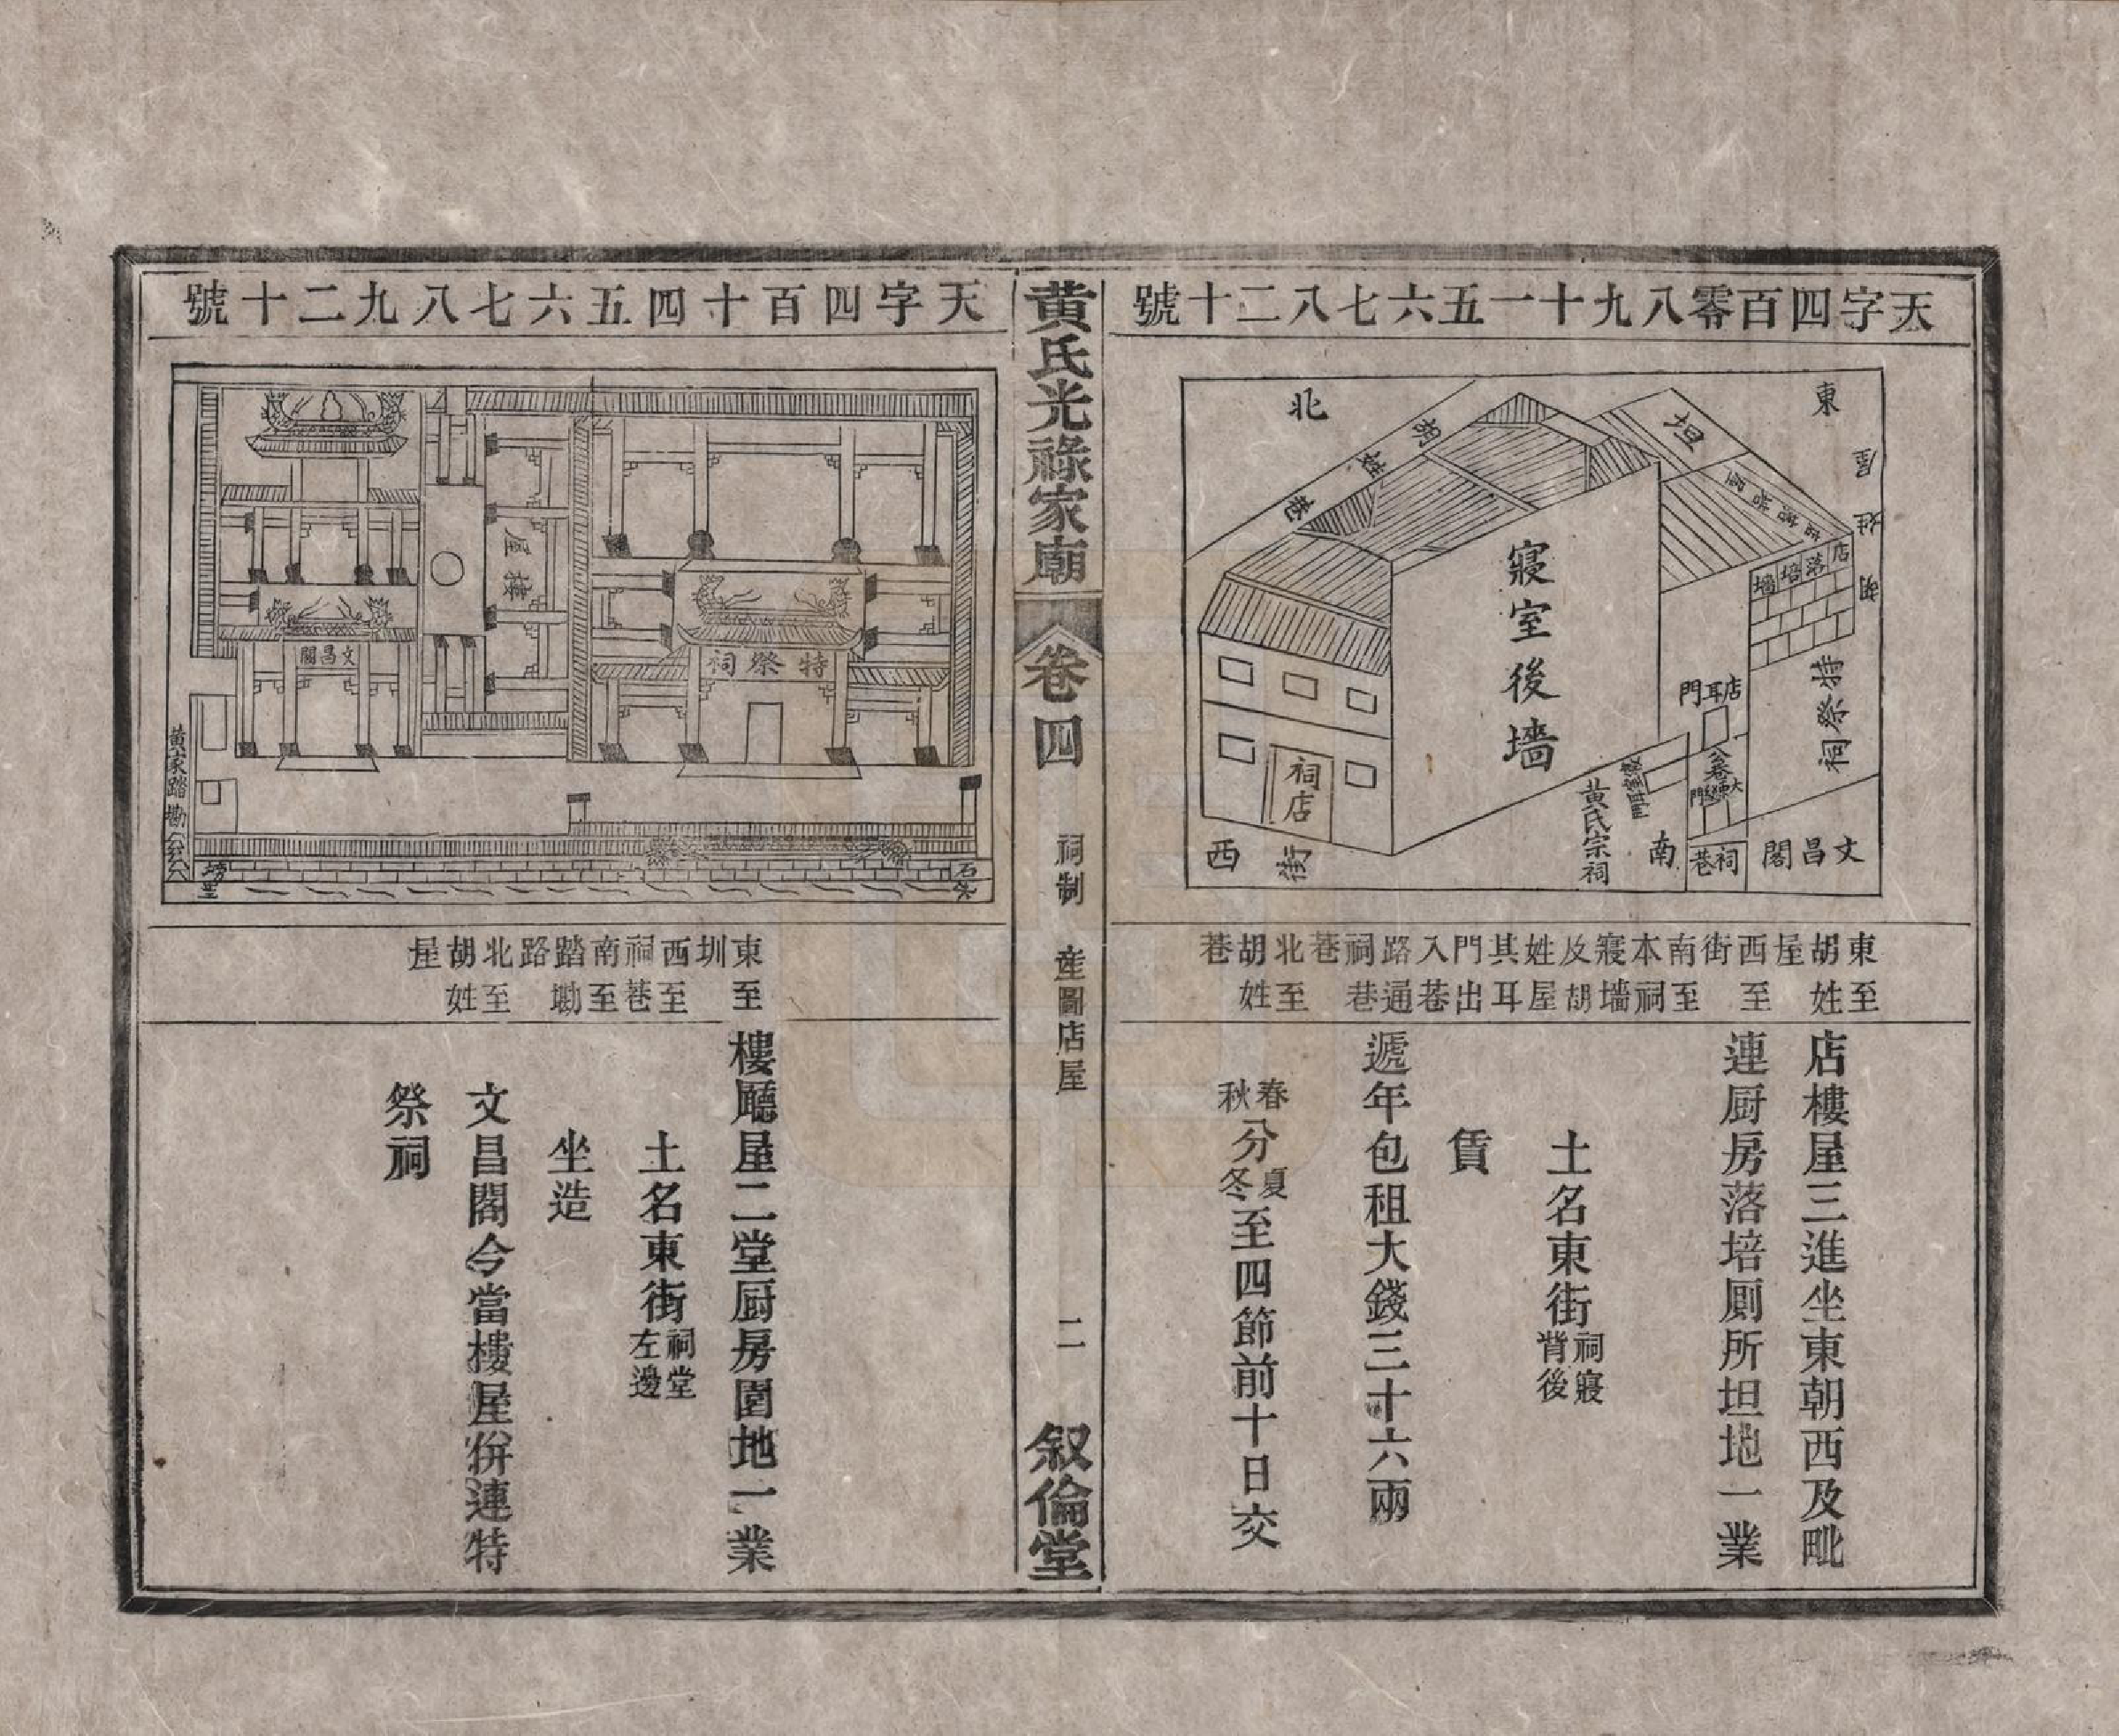 天字四百零八九十一五六七八二十號
北
東
胡姓巷
坦
胡姓屋
店落培墻
寢室後墻
店耳門
特祭祠
祠店
黃氏宗祠
西
街
南
祠巷
文昌閣
東至胡姓屋西至街南至本祠寢墻及胡姓屋其耳門出入巷路通祠巷巷北至胡姓巷
店樓屋三進坐東朝西及毗
連厨房落培厠所坦地一業
土名東街祠寢背後
賃
遞年包租大錢三十六兩
春秋分夏冬至四節前十日交
黃氏光祿家廟
卷四
祠制
産圖店屋
二
叙倫堂
天字四百十四五六七八九二十號
樓屋
特祭祠
文昌閣
黃家踏墈
東至圳西至祠巷南至踏墈路北至胡姓屋
樓廳屋二堂厨房園地一業
土名東街祠堂左邊
坐造
文昌閣今當樓屋併連特
祭祠